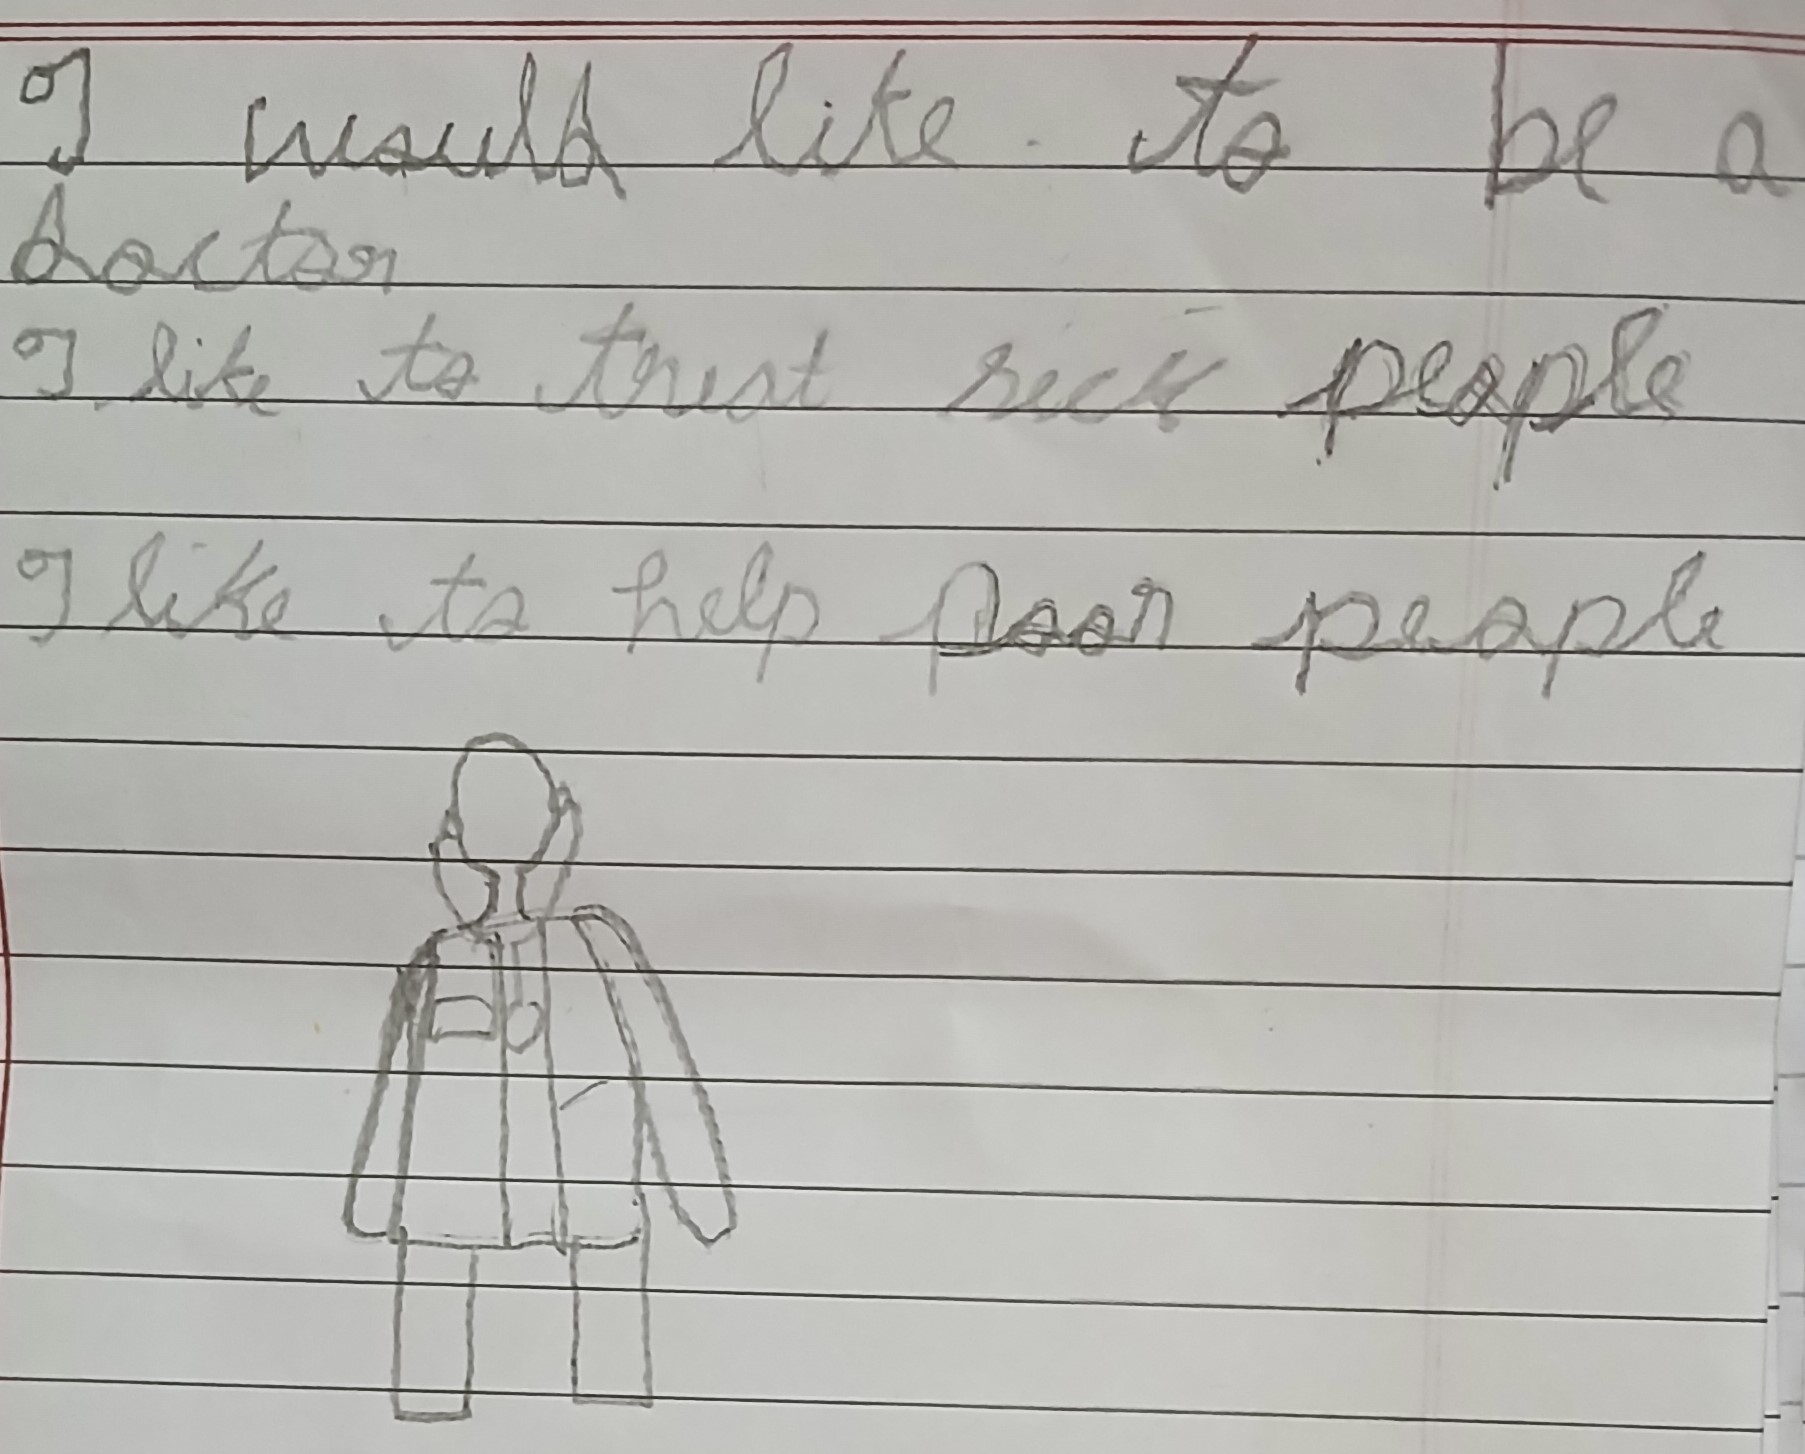 I would like to be a
doctor
I like to trust sick people
I like to help poor people